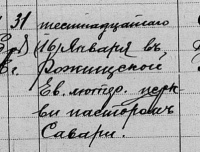 31 шестнадцатаго
(16) Января въ
Рожищской
Ев. лютер. церк
ви пасторомъ
Савари.